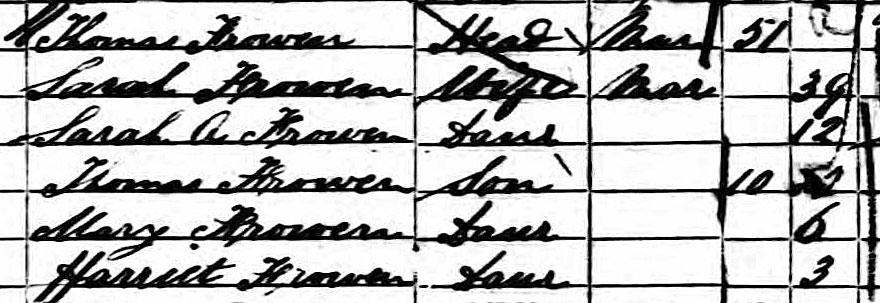 Thomas Frowen Head Mar 51
Sarah Frowen Wife Mar 39
Sarah A Frowen Daur 12
Thomas Frowen Son 10
Mary Frowen Daur 6
Harriet Frowen Daur 3